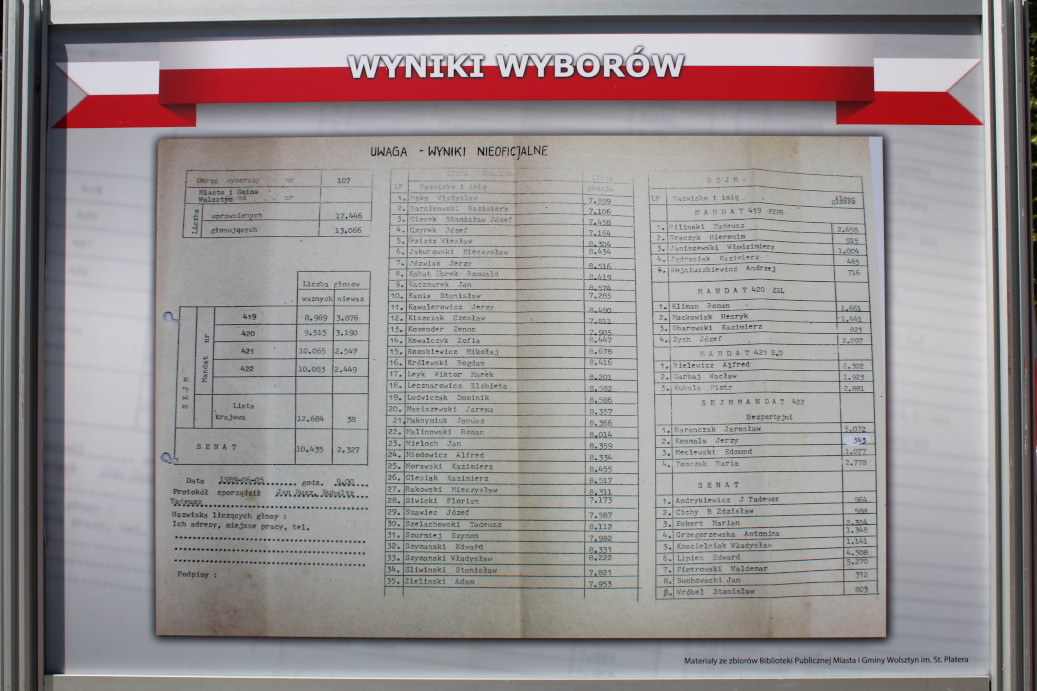 WYNIKI WYBORÓW
UWAGA - WYNIKI NIEOFICJALNE
Okręg wyborczy nr 107
Miasta i Gmina
Wolsztyn od nr
Liczba
uprawnionych 17.446
głosujących 13.066
Liczba głosow
ważnych nieważ
SEJM
Mandat nr
419 8.969 3.876
420 9.515 3.190
421 10.065 2.547
422 10.083 2.449
Lista
krajowa 12.684 38
SENAT 10.435 2.327
Data 1989-06-05 godz. 9.00
Protokół sporządził Jan
Tadeusz
Nazwiska liczących głosy :
Ich adresy, miejsce pracy, tel.
Podpisy :
LP Nazwisko i imię głosów
1. Baka Władysław 7.999
2. Barcikowski Kazimierz 7.106
3. Ciosek Stanisław Józef 7.458
4. Czyrek Józef 7.164
5. Gwiazda Wiesław 8.304
6. Jakubowski Mieczysław 8.434
7. Jóźwiak Jerzy 8.516
8. Kabat Marek Romuald 8.419
9. Kaczmarek Jan 8.574
10. Kania Stanisław 7.285
11. Kawalerowicz Jerzy 8.490
12. Kiszczak Czesław 7.811
13. Komender Zenon 7.905
14. Kowalczyk Zofia 8.447
15. Kozakiewicz Mikołaj 8.678
16. Królewski Bogdan 8.416
17. Leyk Wiktor Marek 8.201
18. Lecznarowicz Elżbieta 8.582
19. Ludwiczak Dominik 8.586
20. Maciszewski Jarema 8.357
21. Maksymiuk Janusz 8.366
22. Malinowski Roman 8.014
23. Mieloch Jan 8.359
24. Miodowicz Alfred 8.334
25. Morawski Kazimierz 8.455
26. Olesiak Kazimierz 8.517
27. Rakowski Mieczysław 8.311
28. Siwicki Florian 7.173
29. Szawiec Józef 7.587
30. Szelachowski Tadeusz 8.112
31. Szurmiej Szymon 7.982
32. Szymański Edward 8.331
33. Szymański Władysław 8.222
34. Śliwiński Stanisław 7.821
35. Zieliński Adam 7.953
SEJM
LP Nazwisko i imię
MANDAT 419 PZPR
1. Biliński Tadeusz 2.658
2. Graczyk Hieronim 515
3. Janiszewski Włodzimierz 1.004
4. Jędraniak Kazimierz 465
5. Wojciuszkiewicz Andrzej 716
MANDAT 420 ZSL
1. Kliman Roman 1.661
2. Maćkowiak Henryk 1.441
3. Obarowski Kazimierz 821
4. Zych Józef 2.097
MANDAT 421 S.D
1. Bielewicz Alfred 2.302
2. Garbaj Wacław 1.923
3. Kubala Piotr 2.881
SEJMMANDAT 422
Bezpartyjni
1. Barańczak Jarosław 5.072
2. Kosmala Jerzy 343
3. Meclewski Edmund 1.077
4. Tomczak Maria 2.778
SENAT
1. Andrykiewicz J Tadeusz 964
2. Cichy B Zdzisław 588
3. Eckert Marian 2.354
4. Grzegorzewska Antonina 1.348
5. Kościelniak Władysław 1.141
6. Lipiec Edward 4.508
7. Piotrowski Waldemar 5.270
8. Suchowacki Jan 312
9. Wróbel Stanisław 803
Materiały ze zbiorów Biblioteki Publicznej Miasta i Gminy Wolsztyn im. St. Platera